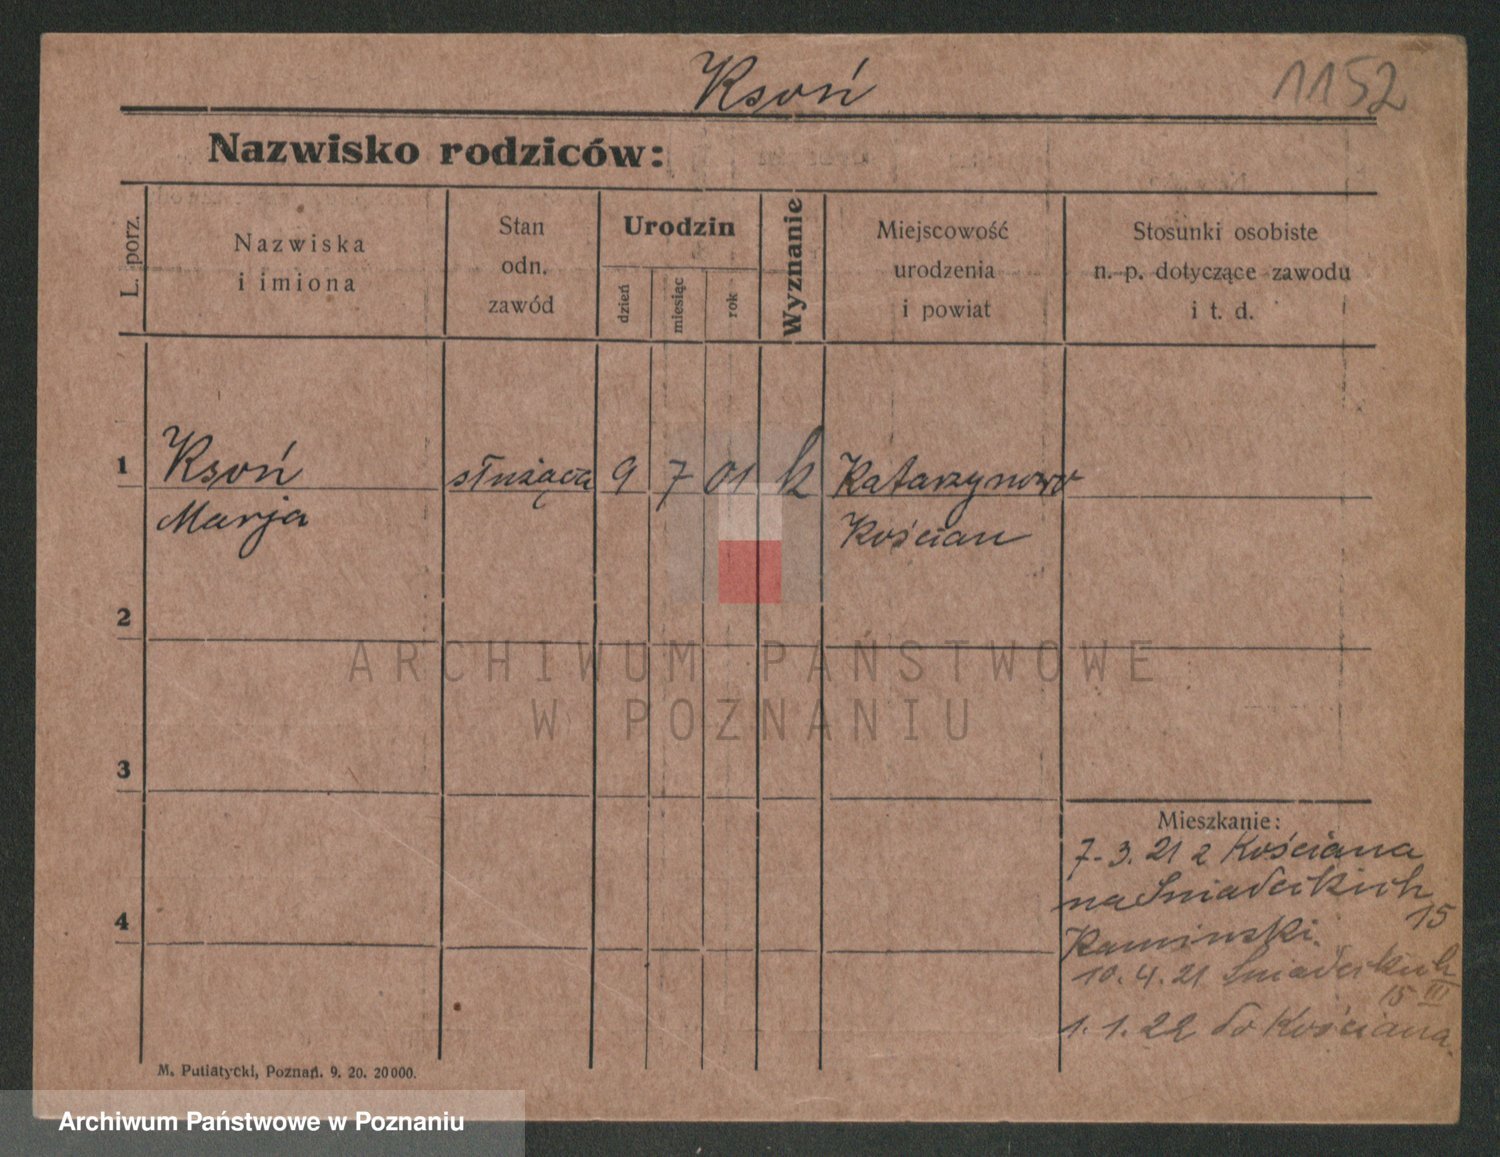 Ksoń
1152
Nazwisko rodziców:
L. porz.
Nazwiska
i imiona
Stan
odn.
zawód
Urodzin
dzień
miesiąc
rok
Wyznanie
Miejscowość
urodzenia
i powiat
Stosunki osobiste
n. p. dotyczące zawodu
i t. d.
1
Ksoń służąca 9 7 01 k Katarzynowo
Marja Kościan
2
ARCHIWUM PAŃSTWOWE
W POZNANIU
3
Mieszkanie:
7-3.21 z Kościana
na Śniadeckich
15
4
Kaminski.
10.4.21 Śniadeckich
15 III
1.1.22 do Kościana.
M. Putiatycki, Poznań. 9. 20. 20000.
Archiwum Państwowe w Poznaniu